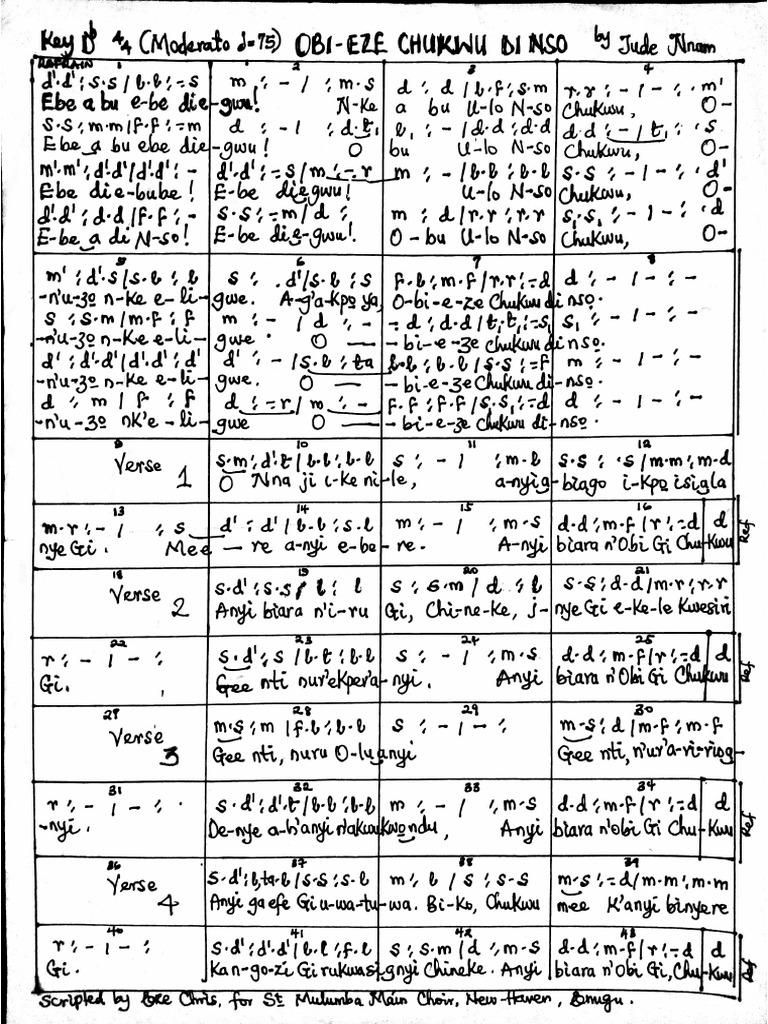 Key Db 4/4 (Moderato d=75) OBI-EZE CHUKWU DI NSO by Jude Nnam
REFRAIN 1 2 3 4
d'.d' : s.s / l.l : - s m : - / : m.s d : d / l.f : s.m r.r : - / - : m'
Ebe a bu e-be die-gwu! N-Ke a bu U-lo N-so Chukwu, O-
s.s : m.m / f.f : - m d : - / : d.t₁ l₁ : - / d.d : d.d d.d : - / t₁ : s
Ebe a bu ebe die-gwu! O bu U-lo N-so Chukwu, O-
m'.m' : d'.d' / d'.d' : - d'.d' : - s / m : - r m : - / l.l : l.l s.s : - / - : d'
Ebe die-bube! E-be diegwu! U-lo N-so Chukwu, O-
d'.d' : d.d / f.f : - s.s : - m / d : m : d / r.r : r.r s₁.s₁ : - / - : d
E-be a di N-so! E-be die-gwu! O-bu U-lo N-so Chukwu, O-
5 6 7 8
m' : d'.s / s.l : l s : .d' / s.l : s f.l : m.f / r.r : - d d : - / - : -
-n'u-zo n-Ke e-li-gwe. A-g'a-kpo ya, O-bi-e-ze Chukwu di nso.
s : s.m / m.f : f m : - / d : - - d : d.d / t₁.t₁ : - s₁ s₁ : - / - : -
-n'u-zo n-Ke e-li-gwe. O — -bi-e-ze Chukwu di nso.
d' : d'.d' / d'.d' : d' d' : - / s.l : ta l.l : l.l / s.s : - f m : - / - : -
-n'u-zo n-Ke e-li-gwe. O — -bi-e-ze Chukwu di-nso.
d : m / f : f d : - r / m : - f.f : f.f / s.s₁ : - d d : - / - : -
-n'u-zo nK'e-li-gwe O — -bi-e-ze Chukwu di-nso.
9 10 11 12
Verse 1 s.m : d'.t / l.l : l.l s : - / : m.l s.s : .s / m.m : m.d
O Nna ji i-ke ni-le, a-nyi g-biago i-kpo isigla
13 14 15 16
m.r : - / : s d' : d' / l.l : s.l m : - / : m.s d.d : m.f / r : - d d
nye Gi. Mee — re a-nyi e-be-re. A-nyi biara n'Obi Gi Chu-Kwu Ref
18 19 20 21
Verse 2 s.d' : s.s / l : l s : s.m / d : l s.s : d.d / m.r : r.r
Anyi biara n'i-ru Gi, Chi-ne-ke, i-nye Gi e-ke-le Kwesiri
22 23 24 25
r : - / - : s.d' : s / l.t : l.l s : - / : m.s d.d : m.f / r : - d d
Gi. Gee nti nur'ekper'a-nyi. Anyi biara n'Obi Gi Chukwu Ref
27 28 29 30
Verse 3 m.s : m / f.l : l.l s : - / - : m.s : d / m.f : m.f
Gee nti, nuru O-lu anyi Gee nti, n'ur'a-ri-rio g-
31 32 33 34
r : - / - : s.d' : d'.t / l.l : l.l m : - / : m.s d.d : m.f / r : - d d
-nyi. De-nye a-h'anyi n'akwukwo ndu, Anyi biara n'Obi Gi Chu-Kwu Ref
36 37 38 39
Verse 4 s.d' : l,ta.l / s.s : s.l m : l / s : s.s m.s : - d / m.m : m.m
Anyi ga efe Gi u-wa-tu-wa. Bi-Ko, Chukwu mee K'anyi binyere
40 41 42 43
r : - / - : s.d' : d'.d' / l.l : f.l s : s.m / d : m.s d.d : m.f / r : - d d
Gi. Kan-go-zi Gi rukwasi gnyi Chineke. Anyi biara n'Obi Gi, Chu-Kwu Ref
Scripted by Eze Chris, for St Mulumba Main Choir, New-Haven, Enugu.